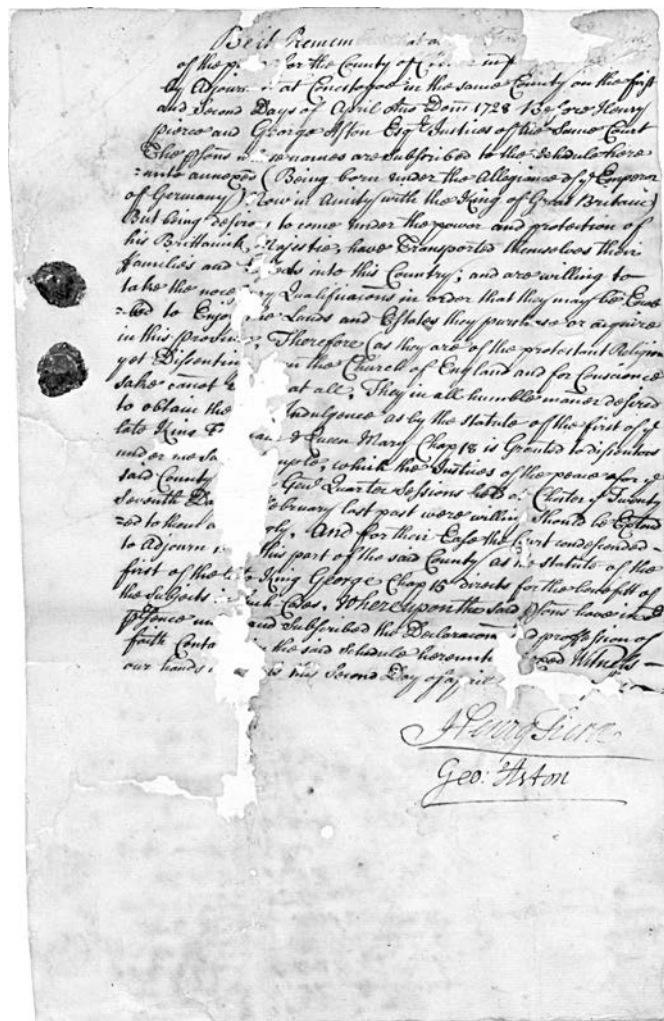 Be it Remem
of the for the County of
by Adjourn at Conestogoe in the same County on the first
and Second Days of April Ano Dom 1728 Before Henry
Pierce and George Aston Esqrs Justices of the Same Court
The psons names are Subscribed to the Schedule here
=unto annexed (Being born under the Allegiance of ye Emperor
of Germany) Now in Amity with the King of Great Britain)
But being desir to come under the power and protection of
his Brittanick Majestie, have Transported themselves their
Families and into this Country; and are willing to
take the Qualificacons in order that they may be Enab
=led to Enjoy Lands and Estates they purchase or acquire
in this Province, Therefore (as they are of the protestant Religion
yet Dissentin the Church of England and for Conscience
sake canot at all, They in all humble maner desired
to obtain the Indulgence as by the Statute of the first of ye
late King & Queen Mary Chap 18 is Granted to disentors
under , which the Justices of the peace afor ye
said County Genl Quarter Sessions held at Chester ye Twenty
Seventh Da February last past were willing Should be Extend
=ed to them , And for their Ease the Court condesended
to Adjourn this part of the said County (as the statute of the
first of the King George Chap 15 directs for the benefitt of
the Subjects in Such Cases, Whereupon the said psons have in
psence and Subscribed the Declaracon profession of
faith Contain the said Schedule hereunto Witness
our hands this Second Day of April
Henry Pierce
Geo: Aston